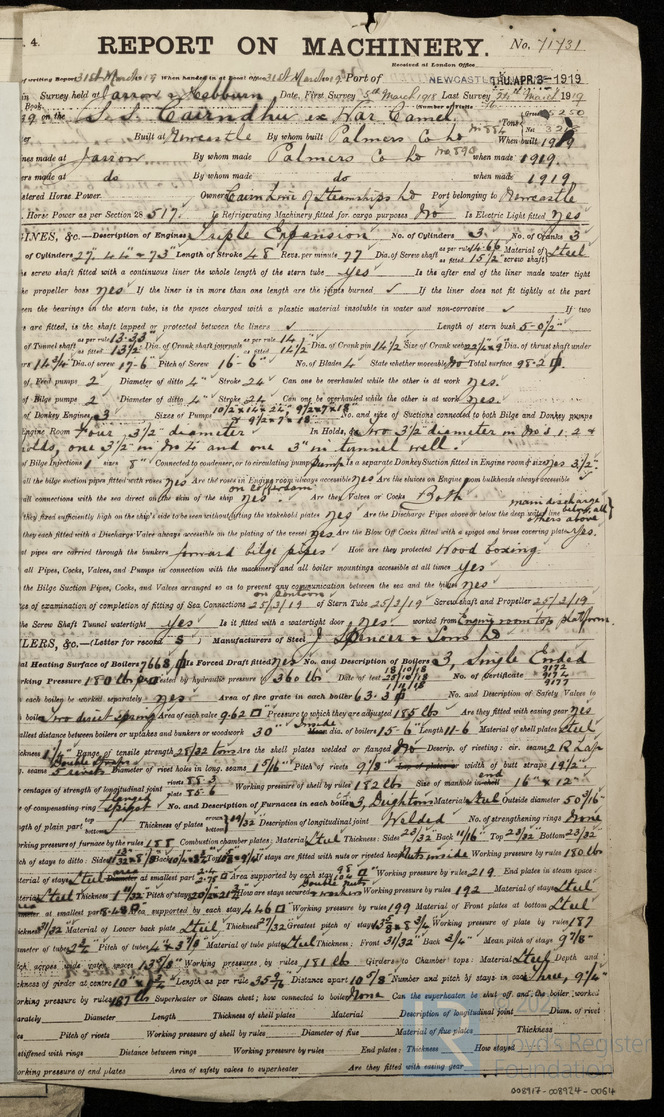 . 4.
REPORT ON MACHINERY.
No. 71731
Received at London Office
THU. APR. 3 - 1919
of writing Report 31st March 19 When handed in at Local Office 31st March 19 Port of NEWCASTLE
in Survey held at Jarrow & Hebburn Date, First Survey 5th March 1918 Last Survey 24th March 1919
Book.
(Number of Visits
on the S.S. Cairndhu ex War Camel
Tons Gross 5250
Net
Built at Newcastle By whom built Palmers Co Ld No 884 When built 1919
nes made at Jarrow By whom made Palmers Co Ld No 890 when made 1919.
rs made at do By whom made do when made 1919
stered Horse Power Owners Cairn Line of Steamships Ld Port belonging to Newcastle
Horse Power as per Section 28 517. Is Refrigerating Machinery fitted for cargo purposes No Is Electric Light fitted yes
INES, &c.—Description of Engines Triple Expansion No. of Cylinders 3 No. of Cranks 3
of Cylinders 27" 44" & 73" Length of Stroke 48 Revs. per minute 77 Dia. of Screw shaft as per rule 14.66 as fitted 15½" Material of screw shaft Steel
he screw shaft fitted with a continuous liner the whole length of the stern tube yes Is the after end of the liner made water tight
he propeller boss yes If the liner is in more than one length are the joints burned ✓ If the liner does not fit tightly at the part
een the bearings in the stern tube, is the space charged with a plastic material insoluble in water and non-corrosive ✓ If two
s are fitted, is the shaft lapped or protected between the liners ✓ Length of stern bush 5-0½"
of Tunnel shaft as per rule 13.33" as fitted 13½ Dia. of Crank shaft journals as per rule 14" as fitted 14½ Dia. of Crank pin 14½ Size of Crank webs 22¼ x 9 Dia. of thrust shaft under
rs 14¾ Dia. of screw 17-6" Pitch of Screw 16-6" No. of Blades 4 State whether moveable No Total surface 98.2
of Feed pumps 2 Diameter of ditto 4" Stroke 24 Can one be overhauled while the other is at work yes.
of Bilge pumps 2 Diameter of ditto 4" Stroke 24 Can one be overhauled while the other is at work yes.
of Donkey Engines 3 Sizes of Pumps 10½ x 14 x 24" 9½ x 7 x 18" No. and size of Suctions connected to both Bilge and Donkey pumps
Engine Room Four 3½" diameter In Holds, &c. Two 3½" diameter in No 3 1. 2 &
olds, one 3½" in No 4 and one 3" in tunnel well.
of Bilge Injections 1 sizes 8" Connected to condenser, or to circulating pump Pump Is a separate Donkey Suction fitted in Engine room & size yes 3½"
all the bilge suction pipes fitted with roses yes Are the roses in Engine room always accessible yes Are the sluices on Engine room bulkheads always accessible ✓
all connections with the sea direct on the skin of the ship yes. on cofferdam Are they Valves or Cocks Both
they fixed sufficiently high on the ship's side to be seen without lifting the stokehold plates yes Are the Discharge Pipes above or below the deep water line main discharge below, all others above
they each fitted with a Discharge Valve always accessible on the plating of the vessel yes Are the Blow Off Cocks fitted with a spigot and brass covering plate yes.
at pipes are carried through the bunkers forward bilge pipes How are they protected Wood boxing
all Pipes, Cocks, Valves, and Pumps in connection with the machinery and all boiler mountings accessible at all times yes
the Bilge Suction Pipes, Cocks, and Valves arranged so as to prevent any communication between the sea and the bilges yes
te of examination of completion of fitting of Sea Connections 25/2/19 on pontoon of Stern Tube 25/2/19 Screw shaft and Propeller 25/2/19
the Screw Shaft Tunnel watertight yes Is it fitted with a watertight door yes worked from Engine room top platform.
LERS, &c.—(Letter for record S) Manufacturers of Steel J Spencer & Sons Ld
al Heating Surface of Boilers 7668 Is Forced Draft fitted yes No. and Description of Boilers 3, Single Ended
rking Pressure 180 lb Tested by hydraulic pressure to 360 lb Date of test 18/10/18 1/11/18 No. of Certificate 9172 9174 9177
each boiler be worked separately yes Area of fire grate in each boiler 63.3 No. and Description of Safety Valves to
boiler Two direct spring Area of each valve 9.62 Pressure to which they are adjusted 185 lbs Are they fitted with easing gear yes
allest distance between boilers or uptakes and bunkers or woodwork 30" Inside dia. of boilers 15-6" Length 11-6 Material of shell plates Steel
ickness Range of tensile strength 28/32 tons Are the shell plates welded or flanged No Descrip. of riveting: cir. seams 2 R Lap
g. seams Double straps 5 rivets Diameter of rivet holes in long. seams 1 5/16" Pitch of rivets 9⅛" width of butt straps 19½"
centages of strength of longitudinal joint rivets 88.3 plate 85.6 Working pressure of shell by rules 182 lb Size of manhole in end 16" x 12"
of compensating ring flanged No. and Description of Furnaces in each boiler 3, Deightons Material Steel Outside diameter 50 3/16"
gth of plain part top bottom Thickness of plates crown bottom 19/32 Description of longitudinal joint Welded No. of strengthening rings None
rking pressure of furnace by the rules 188 Combustion chamber plates: Material Steel Thickness: Sides 23/32 Back 11/16" Top 23/32 Bottom 23/32
ch of stays to ditto: Sides Back Top If stays are fitted with nuts or riveted heads Nuts inside Working pressure by rules 180 lb
aterial of stays Steel area at smallest part Area supported by each stay Working pressure by rules 219 End plates in steam space:
aterial Steel Thickness 1 1/32 Pitch of stays How are stays secured Double nuts & washers Working pressure by rules 192 Material of stays Steel
at smallest part Area supported by each stay 446 Working pressure by rules 199 Material of Front plates at bottom Steel
ickness 31/32 Material of Lower back plate Steel Thickness 27/32 Greatest pitch of stays Working pressure of plate by rules 187
ameter of tubes Pitch of tubes Material of tube plates Steel Thickness: Front 31/32" Back ¾" Mean pitch of stays 9⅞"
ch across wide water spaces 13⅝" Working pressures by rules 181 lb Girders to Chamber tops: Material Steel Depth and
ckness of girder at centre Length as per rule Distance apart 10⅝" Number and pitch of stays in each Three, 9¼"
rking pressure by rules 187 lb Superheater or Steam chest; how connected to boiler None Can the superheater be shut off and the boiler worked
arately Diameter Length Thickness of shell plates Material Description of longitudinal joint Diam. of rivet
Pitch of rivets Working pressure of shell by rules Diameter of flue Material of flue plates Thickness
stiffened with rings Distance between rings Working pressure by rules End plates: Thickness How stayed
orking pressure of end plates Area of safety valves to superheater Are they fitted with easing gear
Lloyd's Register
Foundation
008917-008924-0064